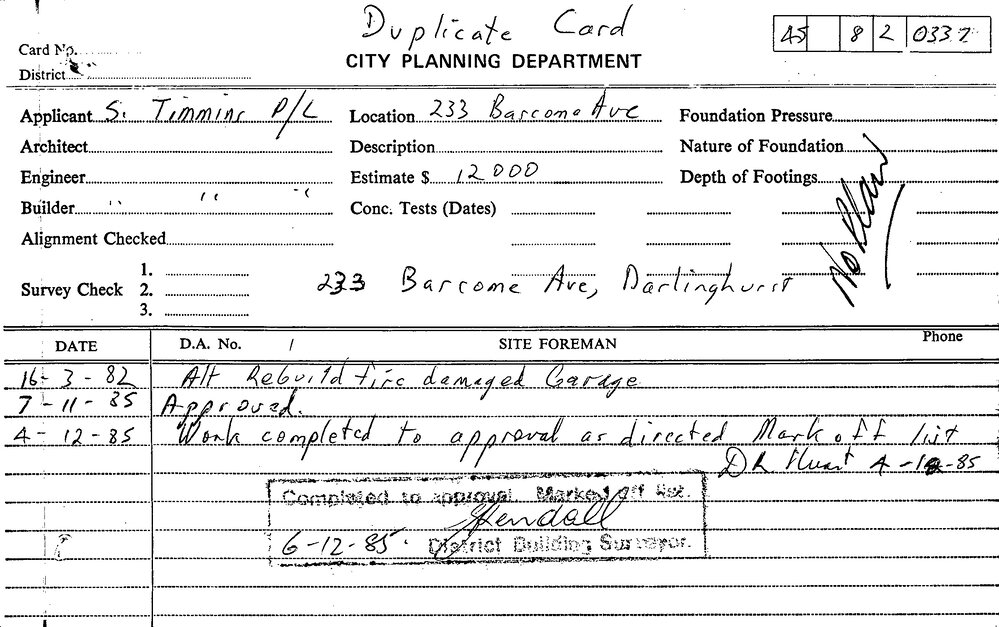 Duplicate Card
45 8 2 0332
Card No.
District
CITY PLANNING DEPARTMENT
Applicant S. Timmins P/L Location 233 Barcome Ave Foundation Pressure
Architect Description Nature of Foundation
Engineer Estimate $ 12000 Depth of Footings
Builder " " " Conc. Tests (Dates)
Alignment Checked
No Plans
Survey Check 1.
2. 233 Barcome Ave, Darlinghurst
3.
DATE D.A. No. / SITE FOREMAN Phone
16-3-82 Alt Rebuild fire damaged Garage
7-11-85 Approved.
4-12-85 Work completed to approval as directed Mark off list
D R 4-12-85
Completed to approval. Marked off list.
Kendall
6-12-85. District Building Surveyor.